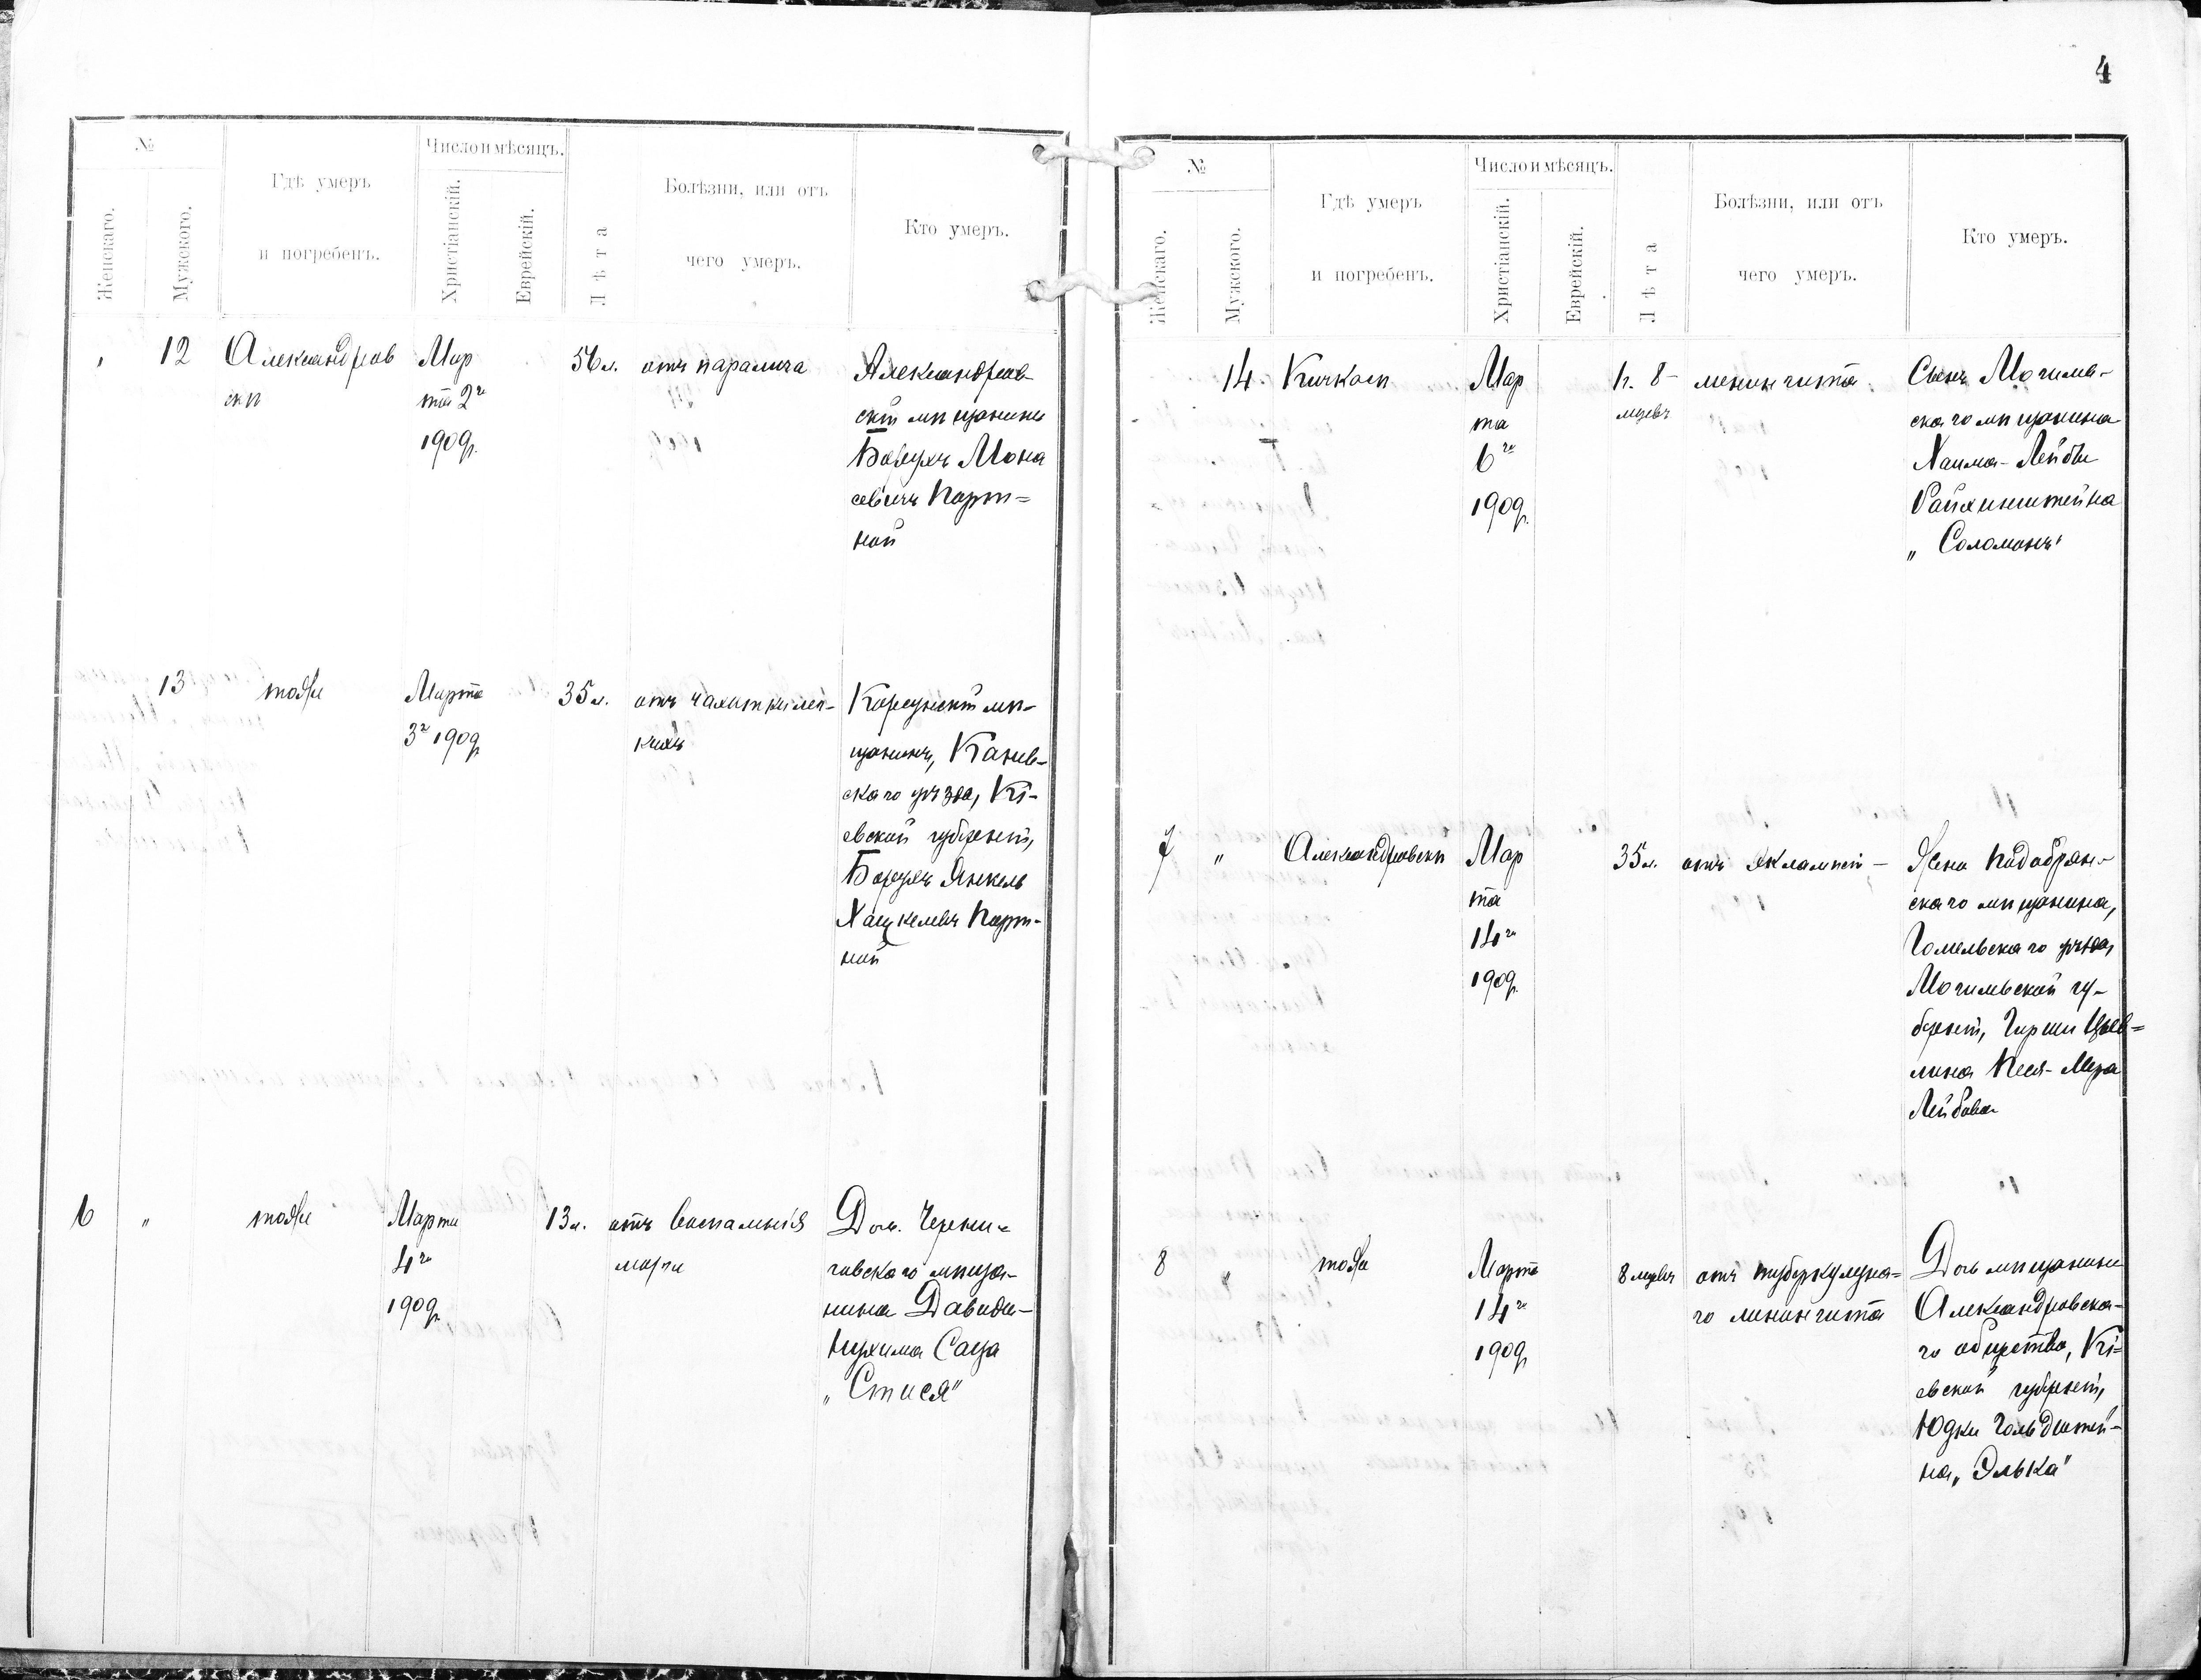 №
Числоимѣсяцъ.
Женскаго.
Мужескаго.
Гдѣ умеръ
и погребенъ.
Христіанскій.
Еврейскій.
Лѣта
Болѣзни, или отъ
чего умеръ.
Кто умеръ.
12
Александров
скѣ
Мар
та 2го
1909г.
56л.
отъ паралича
Александров
скій мѣщанинъ
Борухъ Мона
севичъ Порт=
ной
13
тоже
Марта
3го 1909г.
35л.
отъ чахотки лег-
кихъ
Корсунскій мѣ-
щанинъ, Канев-
скаго уѣзда, Кі-
евской губерніи,
Борухъ Янкель
Хацкелевъ Порт-
ной
6
"
тоже
Марта
4го
1909г.
13л.
отъ воспаленія
Доч. Черни-
говскаго мѣща-
нина Давида-
Нухима Саца
„Стися"
4
№
Числоимѣсяцъ.
Женскаго.
Мужескаго.
Гдѣ умеръ
и погребенъ.
Христіанскій.
Еврейскій.
Лѣта
Болѣзни, или отъ
чего умеръ.
Кто умеръ.
14.
Кичкасъ
Мар
та
6го
1909г.
1г. 8-
мцевъ
менингита
Сынъ Могилев-
скаго мѣщанина
Хаима-Лейбы
Райхинштейна
„Соломонъ"
7
"
Александровскѣ
Мар
та
14го
1909г.
35л.
отъ эклампсіи-
Жена Подобрян-
скаго мѣщанина,
Гомельскаго уѣзда,
Могилевской гу-
берніи, Гирши Цыв=
лина Песя-Мера
Лейбова
8
"
тоже
Марта
14го
1909г.
8 мцевъ
отъ туберкулезна=
го менингита
Дочь мѣщанина
Александровска-
го общества, Кі-
евской губерніи,
Юдки Гольдштей-
на „Элька"